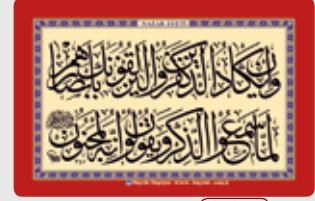 NAZAR AYETİ
وَإِن يَكَادُ الَّذِينَ كَفَرُوا لَيُزْلِقُونَكَ بِأَبْصَارِهِمْ
لَمَّا سَمِعُوا الذِّكْرَ وَيَقُولُونَ إِنَّهُ لَمَجْنُونٌ